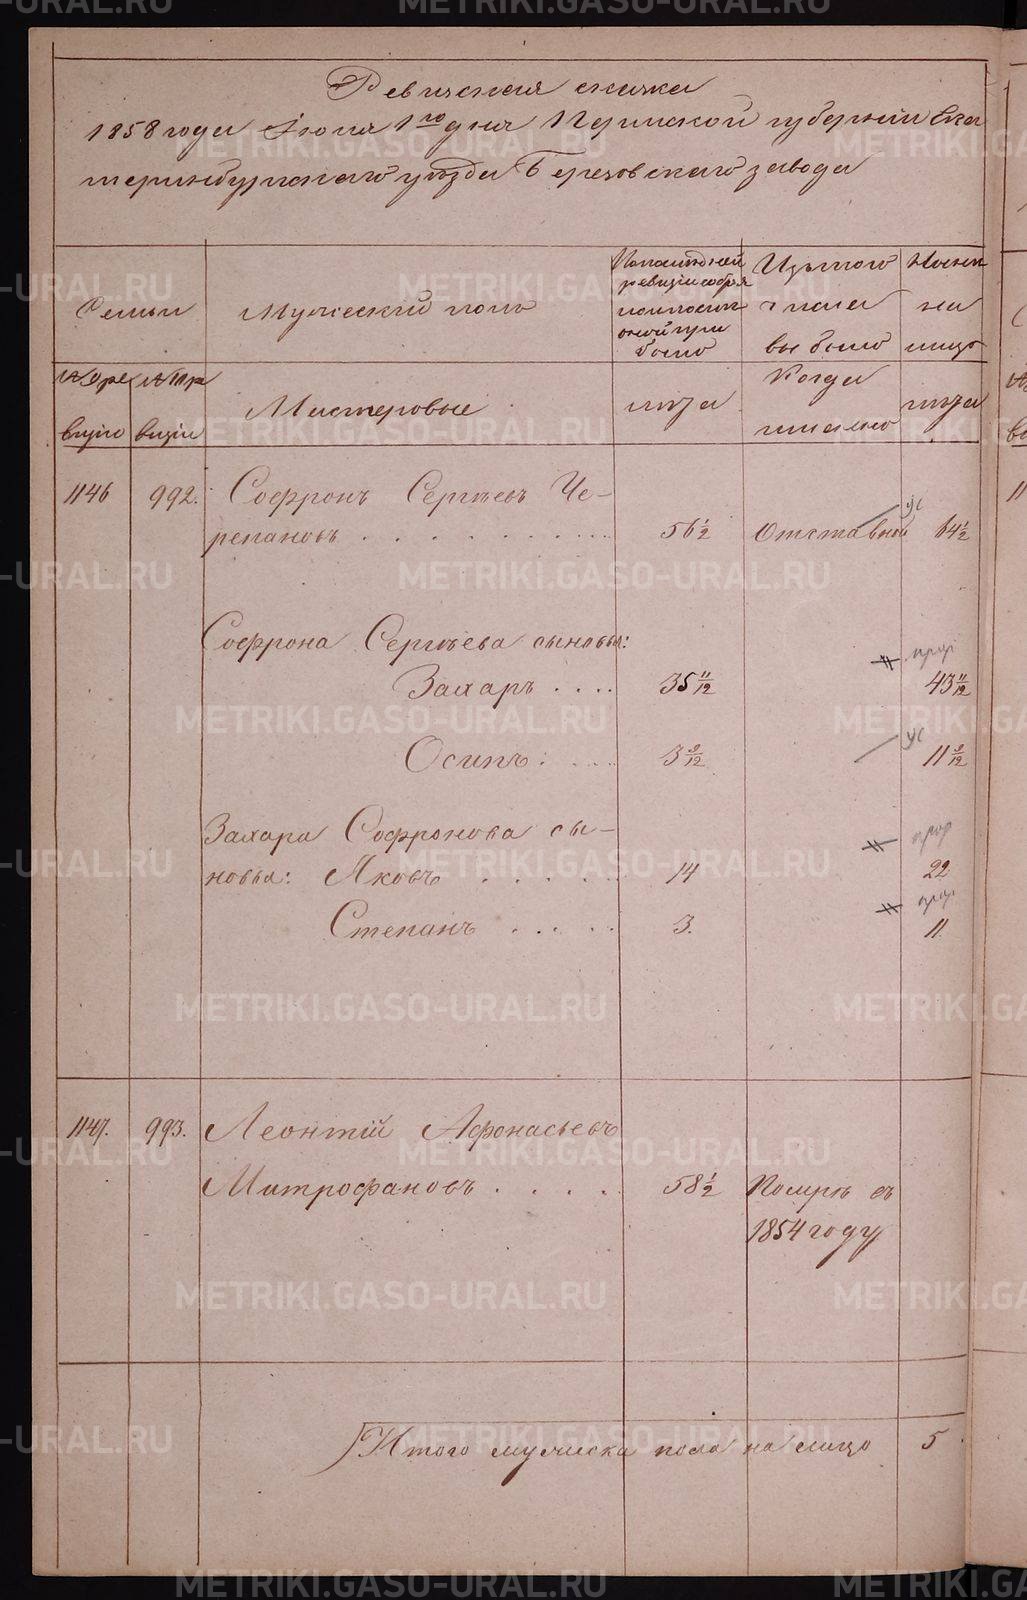 Ревизская сказка
1858 года Июня 1го дня Пермской губернии Ека
теринбургскаго уѣзда Березовскаго завода
Семьи
Мужеский полъ
По последней
ревизии
было
Изъ того
числа
выбыло
Ныне
на
лицо
Мастеровые
лѣта
Когда
именно
лѣта
1146 992. Софронъ Сергѣевъ Че-
репановъ . . . . . . . . . . 56 1/2 Отставной 64 1/2
ус
Софрона Сергѣева сыновья:
Захаръ . . . . 35 11/12 43 11/12
Осипъ: . . . . 3 9/12 11 9/12
ус
Захара Софронова сы-
новья: Яковъ . . . . . . 14 22
Степанъ . . . . . 3. 11
1147. 993. Леонтій Афонасьевъ
Митрофановъ . . . . . 58 1/2 Померъ въ
1854 году
Итого мужеска пола на лицо 5
METRIKI.GASO-URAL.RU